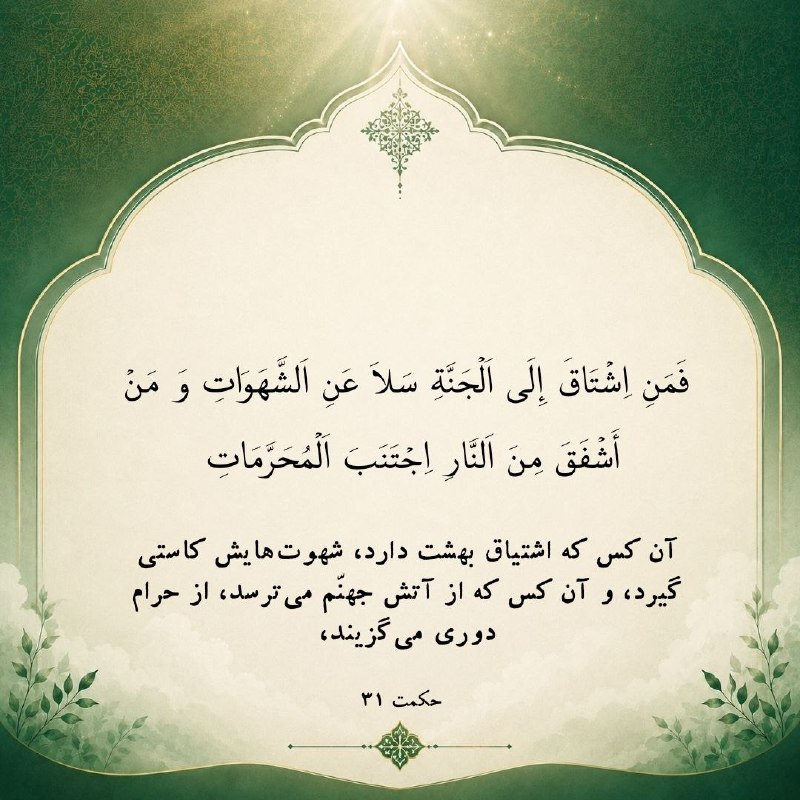 فَمَنِ اِشْتَاقَ إِلَى اَلْجَنَّةِ سَلاَ عَنِ اَلشَّهَوَاتِ وَ مَنْ
أَشْفَقَ مِنَ اَلنَّارِ اِجْتَنَبَ اَلْمُحَرَّمَاتِ
آن کس که اشتیاق بهشت دارد، شهوت‌هایش کاستی
گیرد، و آن کس که از آتش جهنّم می‌ترسد، از حرام
دوری می‌گزیند،
حکمت ۳۱